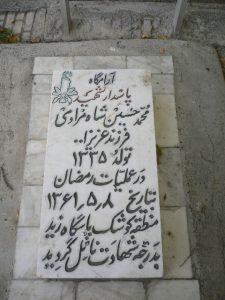 آرامگاه
پاسدار شهید
محمد حسین شاه مرادی
فرزند عزیزا..
تولد ۱۳۳۵
در عملیات رمضان
بتاریخ ۱۳۶۱،۵،۸
منطقه کوشک پاسگاه زید
بدرجه شهادت نائل گردید